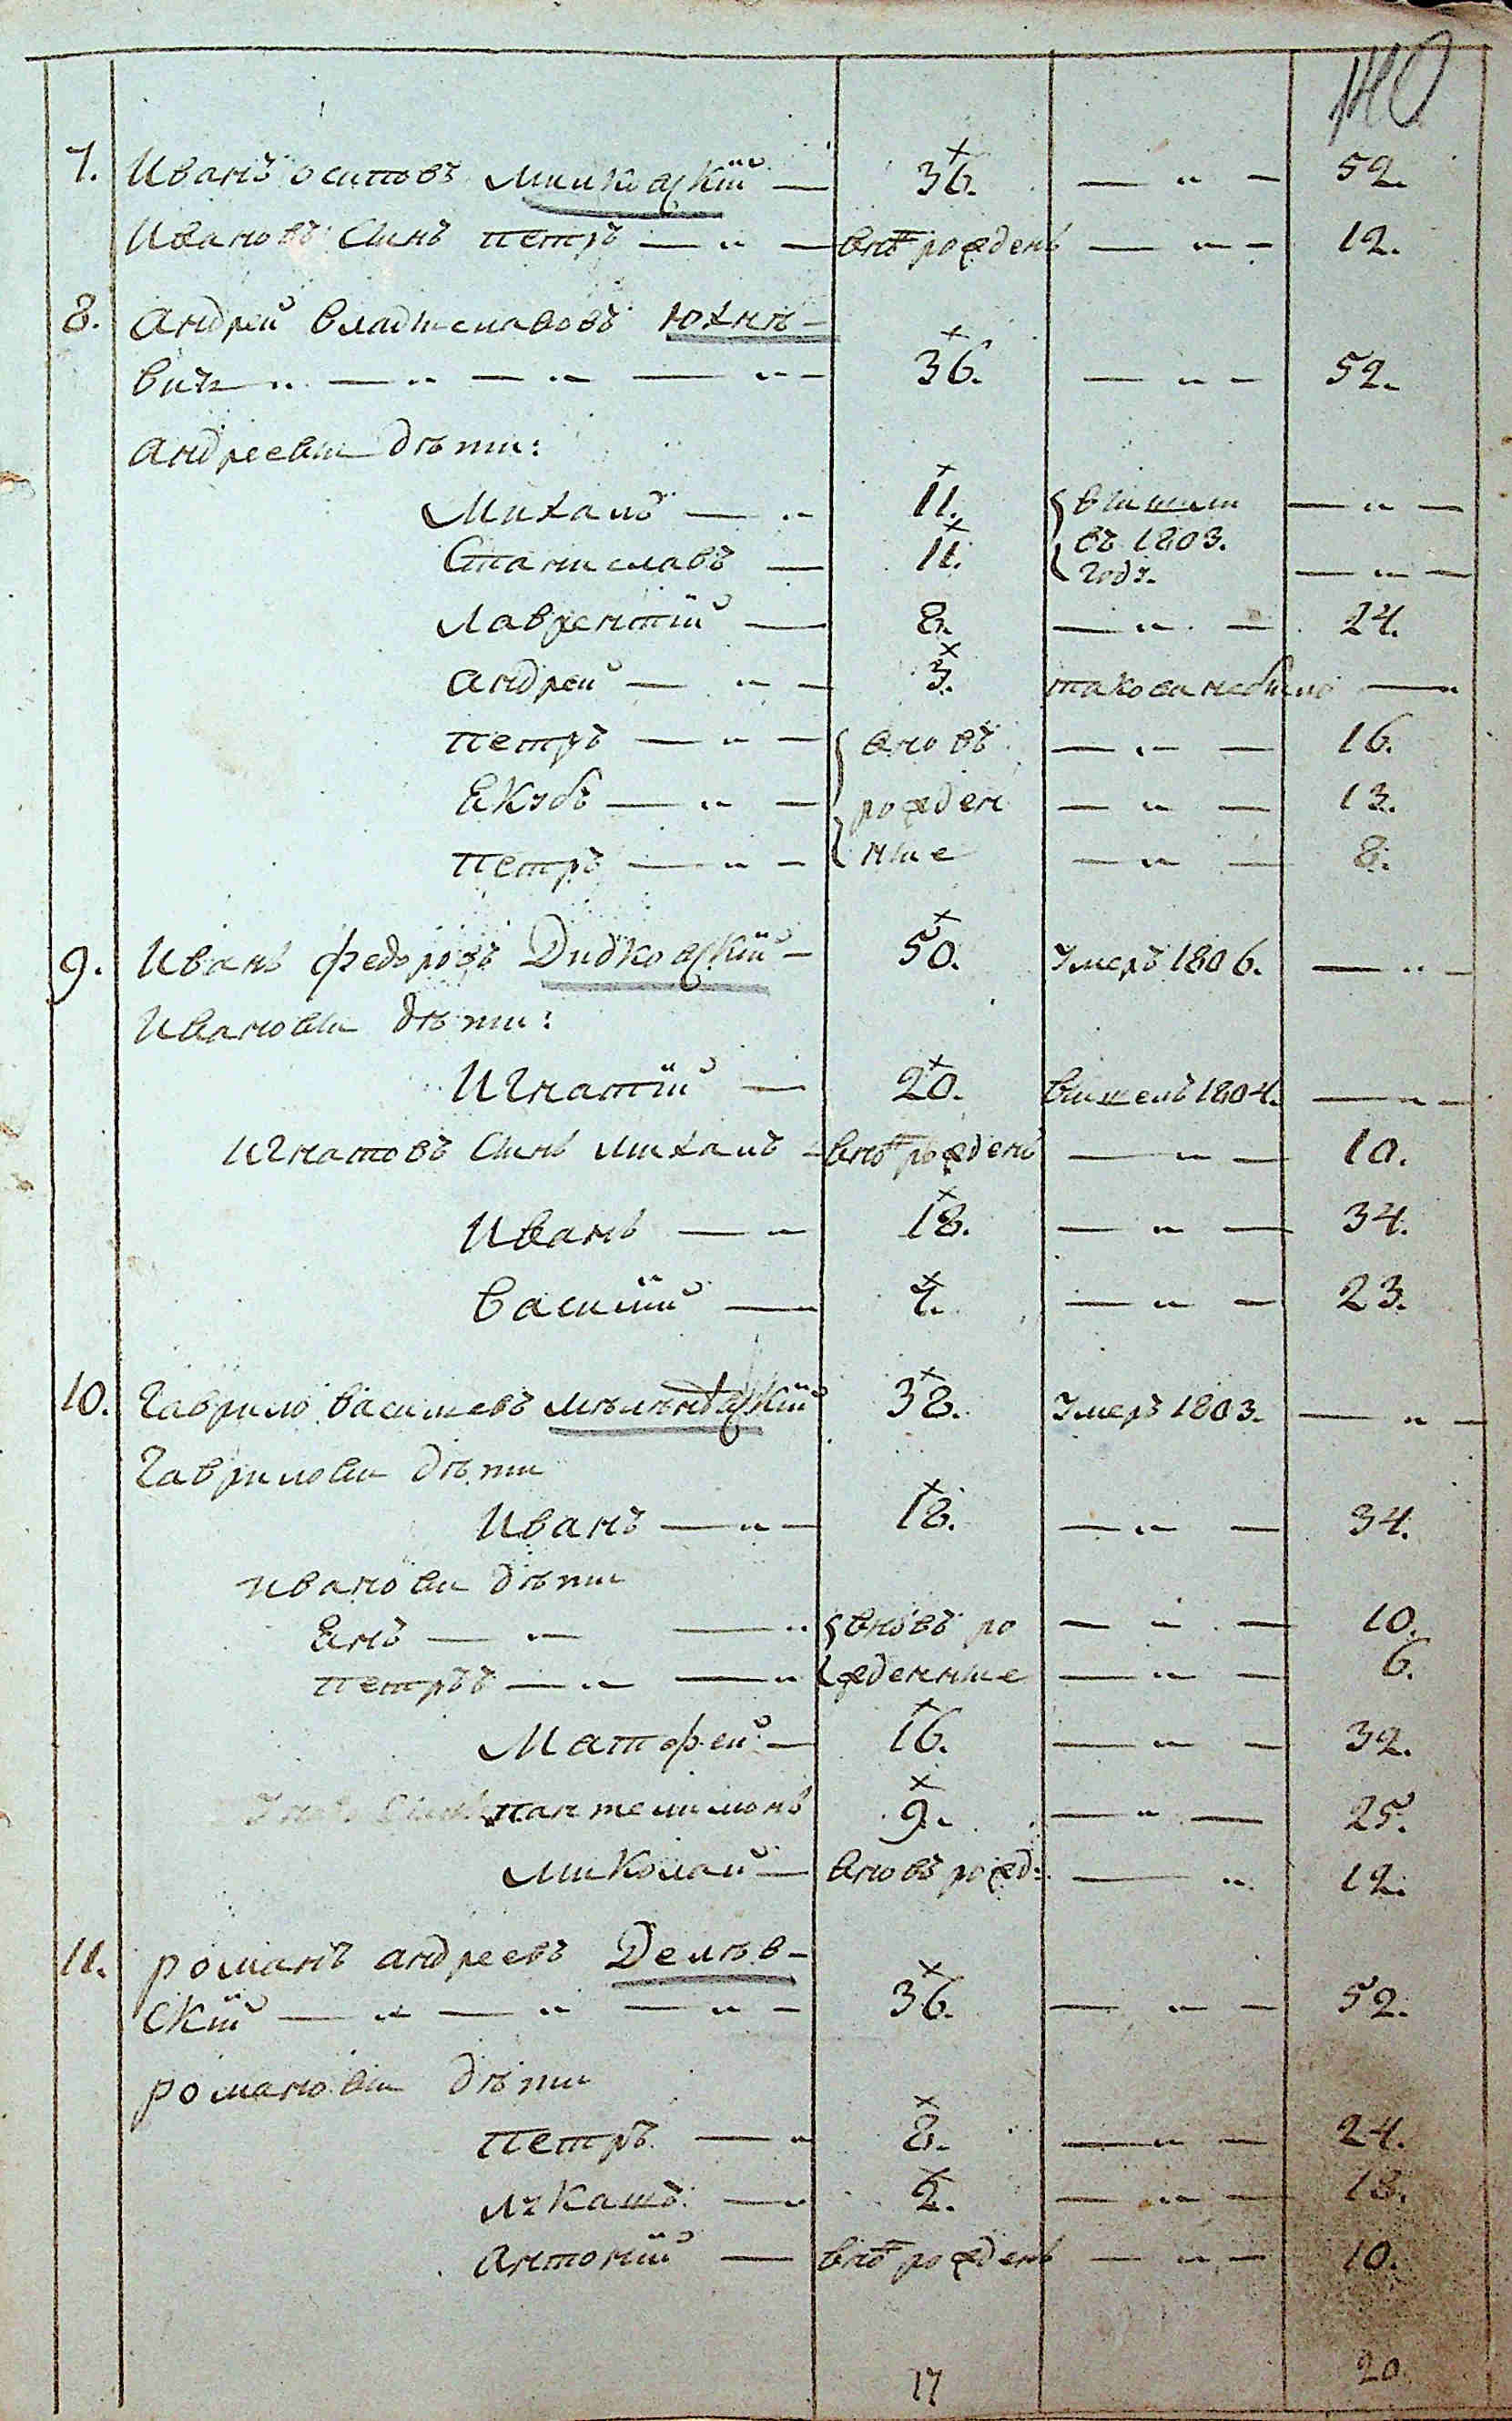 7. Иванъ осиповъ Минковскїй — 36. — „ — 52.
Ивановъ сынъ петръ — „ — вновъ рожденъ — „ — 12.
8. Андрей владиславовъ Юхнѣ-
вичъ „ — „ — „ — „ — 36. — „ — 52.
Андреевы дѣти:
Михалъ — „ 11. вышли — „ —
Станиславъ — 11. въ 1803. году. — „ —
Лаврентїй — 8. — „ — 24.
Андрей — „ — 3. такова небыло — „
петръ — „ — вновъ — „ — 16.
Якубъ — „ — рожден — „ — 13.
петръ — „ — ные — „ — 8.
9. Иванъ федоровъ Дидковскїй — 50. Умеръ 1806. — „ —
Ивановы дѣти:
Игнатїй — 20. вышелъ 1804. — „ —
Игнатовъ сынъ михалъ - вновъ рожденъ — „ — 10.
Иванъ — „ 18. — „ — 34.
василїй — „ 7. — „ — 23.
10. Гаврило василиевъ 38. Умеръ 1803. — „ —
Гавриловы дѣти
Иванъ — „ — 18. — „ — 34.
ивановы дѣти
Янъ — „ — „ вновъ ро — „ — 10.
петръ — „ — „ жденные — „ — 6.
Матфей — 16. — „ — 32.
пантелимонъ 9. — „ — 25.
миколай — вновъ рожд: — „ 12.
11. романъ андреевъ Демѣв-
скїй — „ — „ — „ — 36. — „ — 52.
романовы дѣти
петръ — „ 8. — „ — 24.
лукашъ — „ 2. — „ — 18.
антонїй — вновъ рожденъ — „ — 10.
17 20